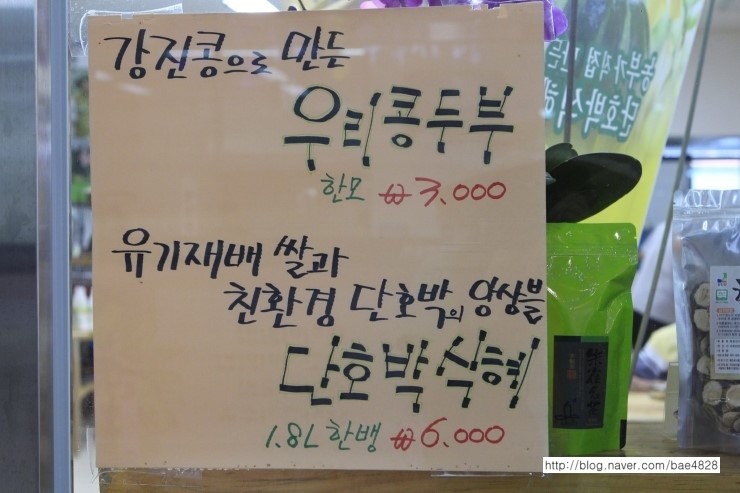 강진콩으로 만든
우리콩두부
한모 ₩3.000
유기재배 쌀과
친환경 단호박의 앙상블
단호박식혜
1.8L 한뱅 ₩6.000
단호박식혜
http://blog.naver.com/bae4828